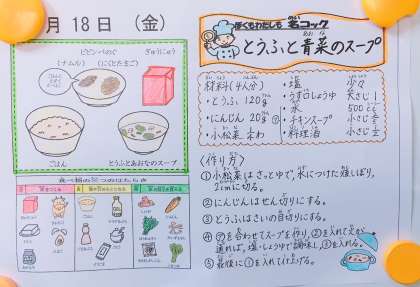 月18日（金）
ビビンバのぐ
（ナムル）（にくとたまご）
ぎゅうにゅう
ごはん
とうふとあおなのスープ
食べ物の三つのはたらき
ぼくもわたしも名コック
とうふと青菜のスープ
材料（4人分）
・とうふ 120g
・にんじん 20g
・小松菜
・塩 少々
・うす口しょうゆ 大さじ1
・水 500cc
・チキンスープ 小さじ
・料理酒 小さじ
〈作り方〉
① 小松菜はさっとゆで、水につけた後しぼり、2cmに切る。
② にんじんはせん切りにする。
③ とうふはさいの目切りにする。
④ ⑦を合わせてスープを作り、②を入れて火が通れば、塩・しょうゆで調味し、③を入れる。
⑤ 最後に①を入れて仕上げる。